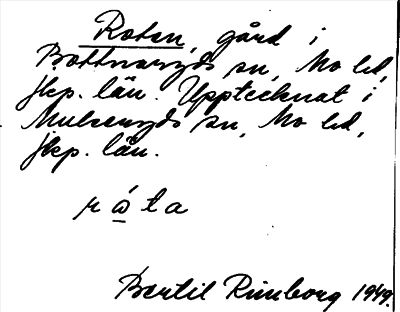 Roten, gård i
Bottnaryds sn, Mo hd,
Jkp. län. Upptecknat i
Mulseryds sn, Mo hd,
Jkp. län.
róta
Bertil Rimborg 1949.